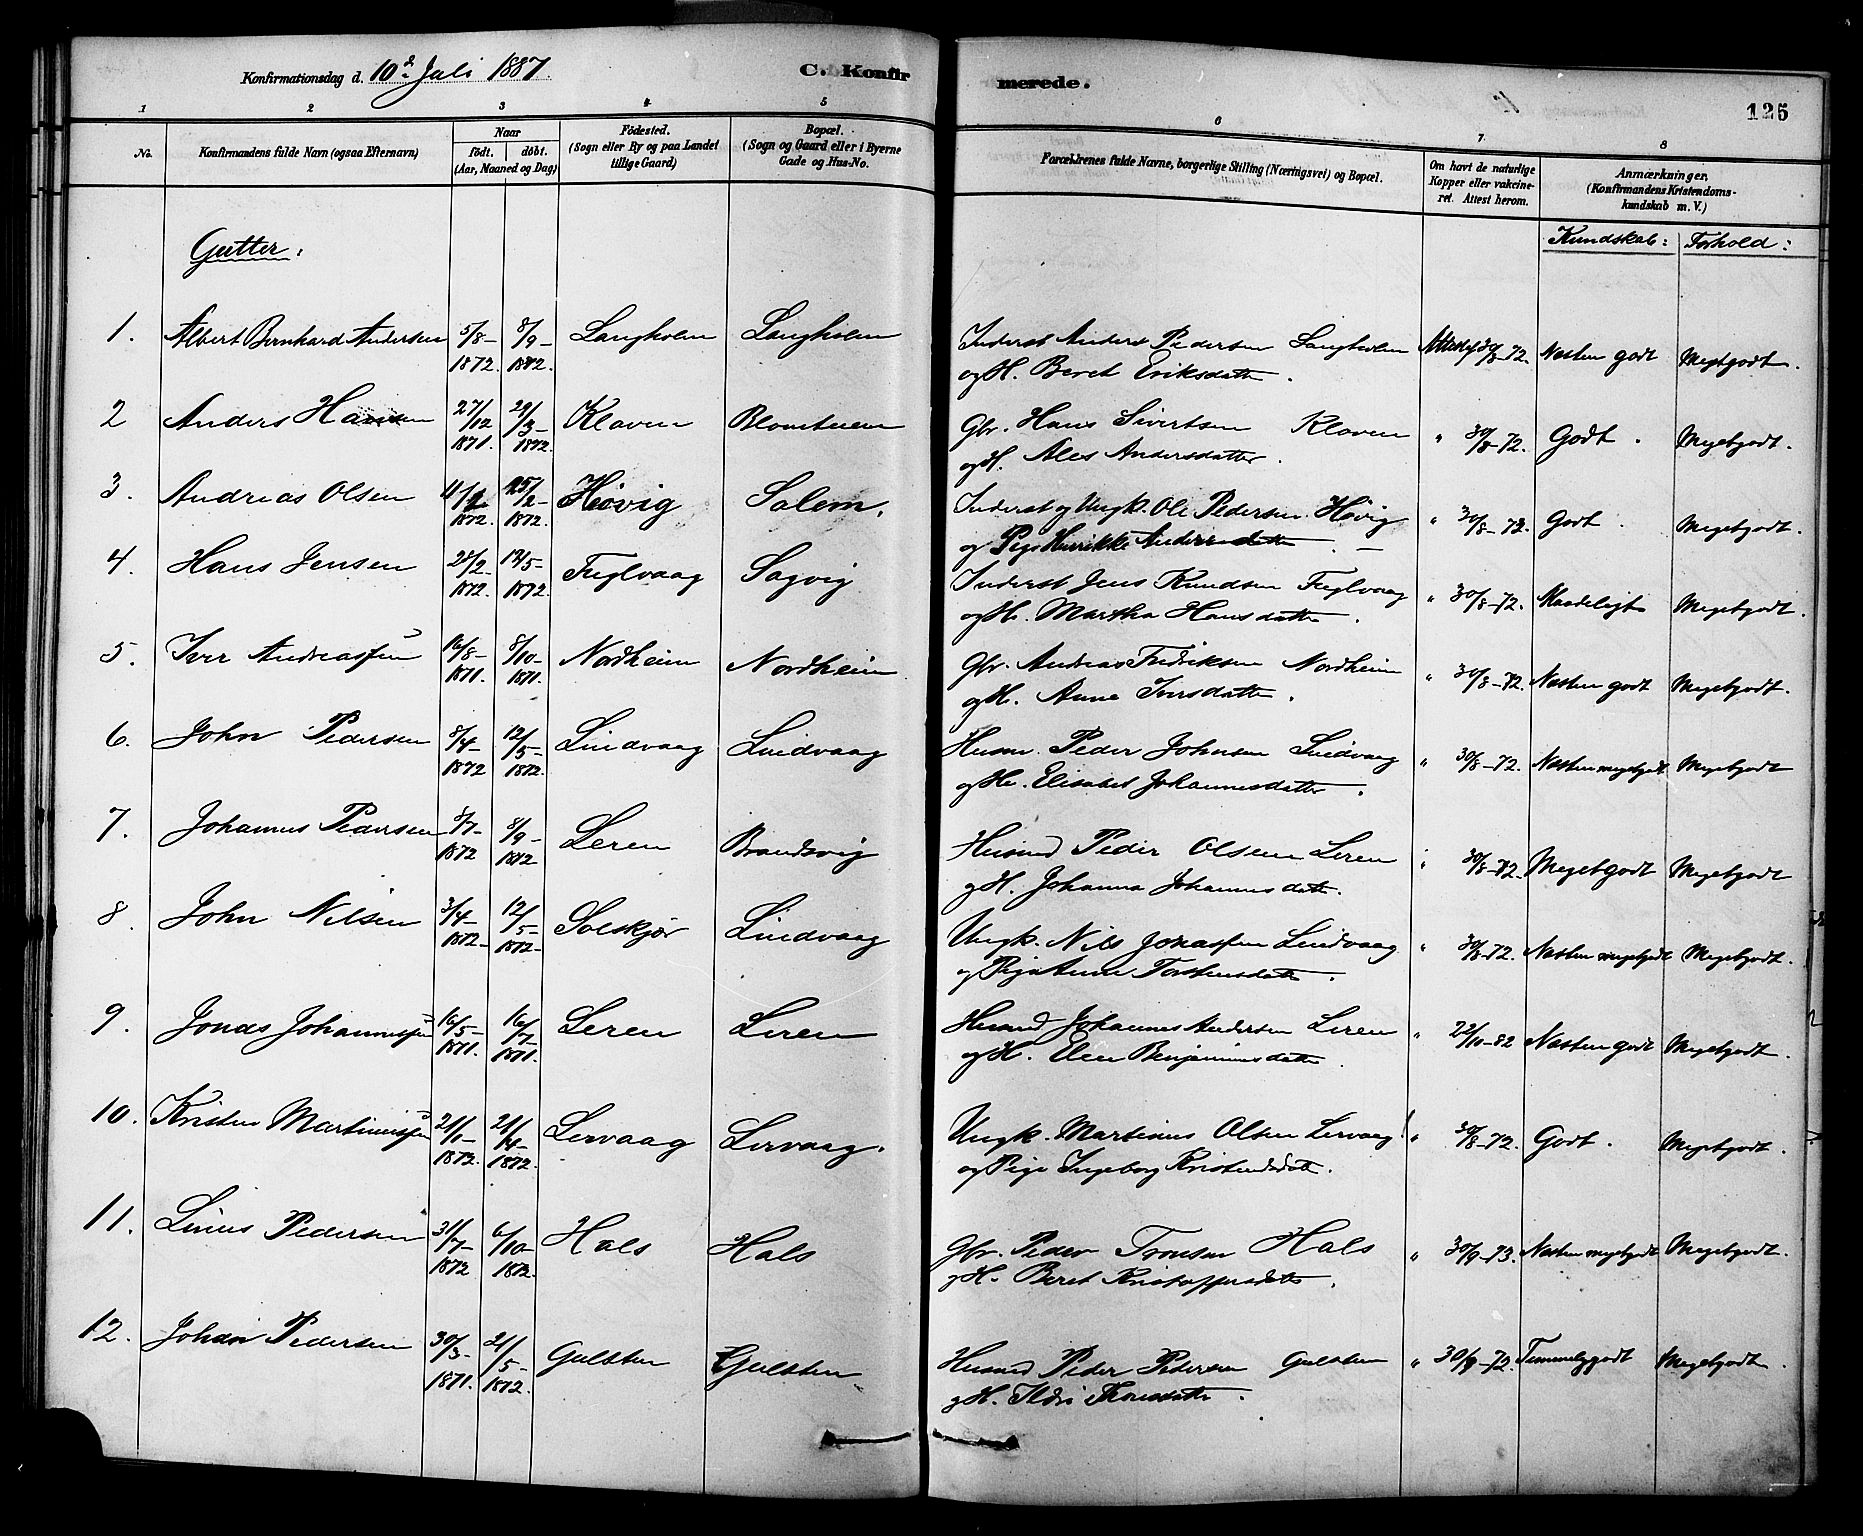 Konfirmationsdag d. 10de Juli 1887.
C. Konfirmerede.
125
1 2 3 4 5 6 7 8
No.
Konfirmandens fulde Navn (ogsaa Efternavn)
Naar
født. døbt.
(Aar, Maaned og Dag)
Fødested.
(Sogn eller By og paa Landet
tillige Gaard)
Bopæl.
(Sogn og Gaard eller i Byerne
Gade og Hus-No.
Forældrenes fulde Navne, borgerlige Stilling (Næringsvei) og Bopæl.
Om havt de naturlige
Kopper eller vakcine-
ret. Attest herom.
Anmærkninger.
(Konfirmandens Kristendoms-
kundskab m. V.)
Kundskab: Forhold:
Gutter:
1. Albert Bernhard Andersen 5/8-1872. 8/9-1872. Langholen Langholen Inderst Anders Pedersen Langholen Attest 30/8-72. Næsten godt Megetgodt.
og H. Beret Eriksdatter.
2 Anders Hansen 27/12 1871. 29/3-1872. Kloven Blomtuen Gbr. Hans Sivertsen Kloven " 30/8-72. Godt. Megetgodt.
og H. Ales Andersdatter.
3. Andreas Olsen 1872. 25/2-1872. Høvig Salem. Inderst og Ungk. Ole Pedersen Høvig " 30/8-72. Godt. Megetgodt.
og Pige Henrikke Andersdatter. —
4. Hans Jensen 2/2-1872. 12/5-1872. Fuglvaag Sagvig Inderst Jens Knudsen Fuglvaag " 30/8-72. Maadeligt Megetgodt.
og H. Martha Hansdatter.
5. Iver Andreassen 16/8-1871. 8/10-1871. Nordheim Nordheim Gbr. Andreas Fredriksen Nordheim " 30/8-72. Næsten godt Megetgodt.
og H. Anne Iversdatter.
6. John Pedersen 8/4-1872 12/5-1872. Lindvaag Lindvaag Husm. Peder Johnsen Lindvaag " 30/8-72. Næsten megetgodt Megetgodt
og H. Elisabet Johannesdatter.
7. Johannes Pedersen 8/7-1872 8/9-1872 Leren Brandsvig Husmd Peder Olsen Leren " 30/8-72. Megetgodt Megetgodt
og H. Johanna Johannesdatter.
8. John Nilsen 3/4-1872- 12/5-1872- Solskjør Lindvaag Ungk. Nils Jonassen Lindvaag " 30/8-72. Næsten megetgodt Megetgodt.
og Pige Anne Torstensdatter.
9. Jonas Johannessen 16/5-1871. 16/7-1871. Leren Leren Husmd Johannes Andersen Leren " 22/10-82 Næsten godt Megetgodt.
og H. Elen Benjaminsdatter
10. Kristen Martinussen 21/1-1872. 21/4-1872. Lervaag Lervaag. Ungk. Martinus Olsen Lervaag " 30/8-72. Godt. Megetgodt.
og Pige Ingeborg Kristensdatt.
11. Linius Pedersen 31/7-1872 6/10-1872. Hals Hals Gbr. Peder Tronsen Hals " 30/9-73. Næsten megetgodt Megetgodt.
og H. Beret Kristoffersdatter.
12. Johan Pedersen 30/3-1871. 21/5-1872. Gulsten Gulsten Husmd Peder Pedersen Gulsten " 30/9-72. Temmelig godt Megetgodt.
og H. Ildri Thoresdatter.